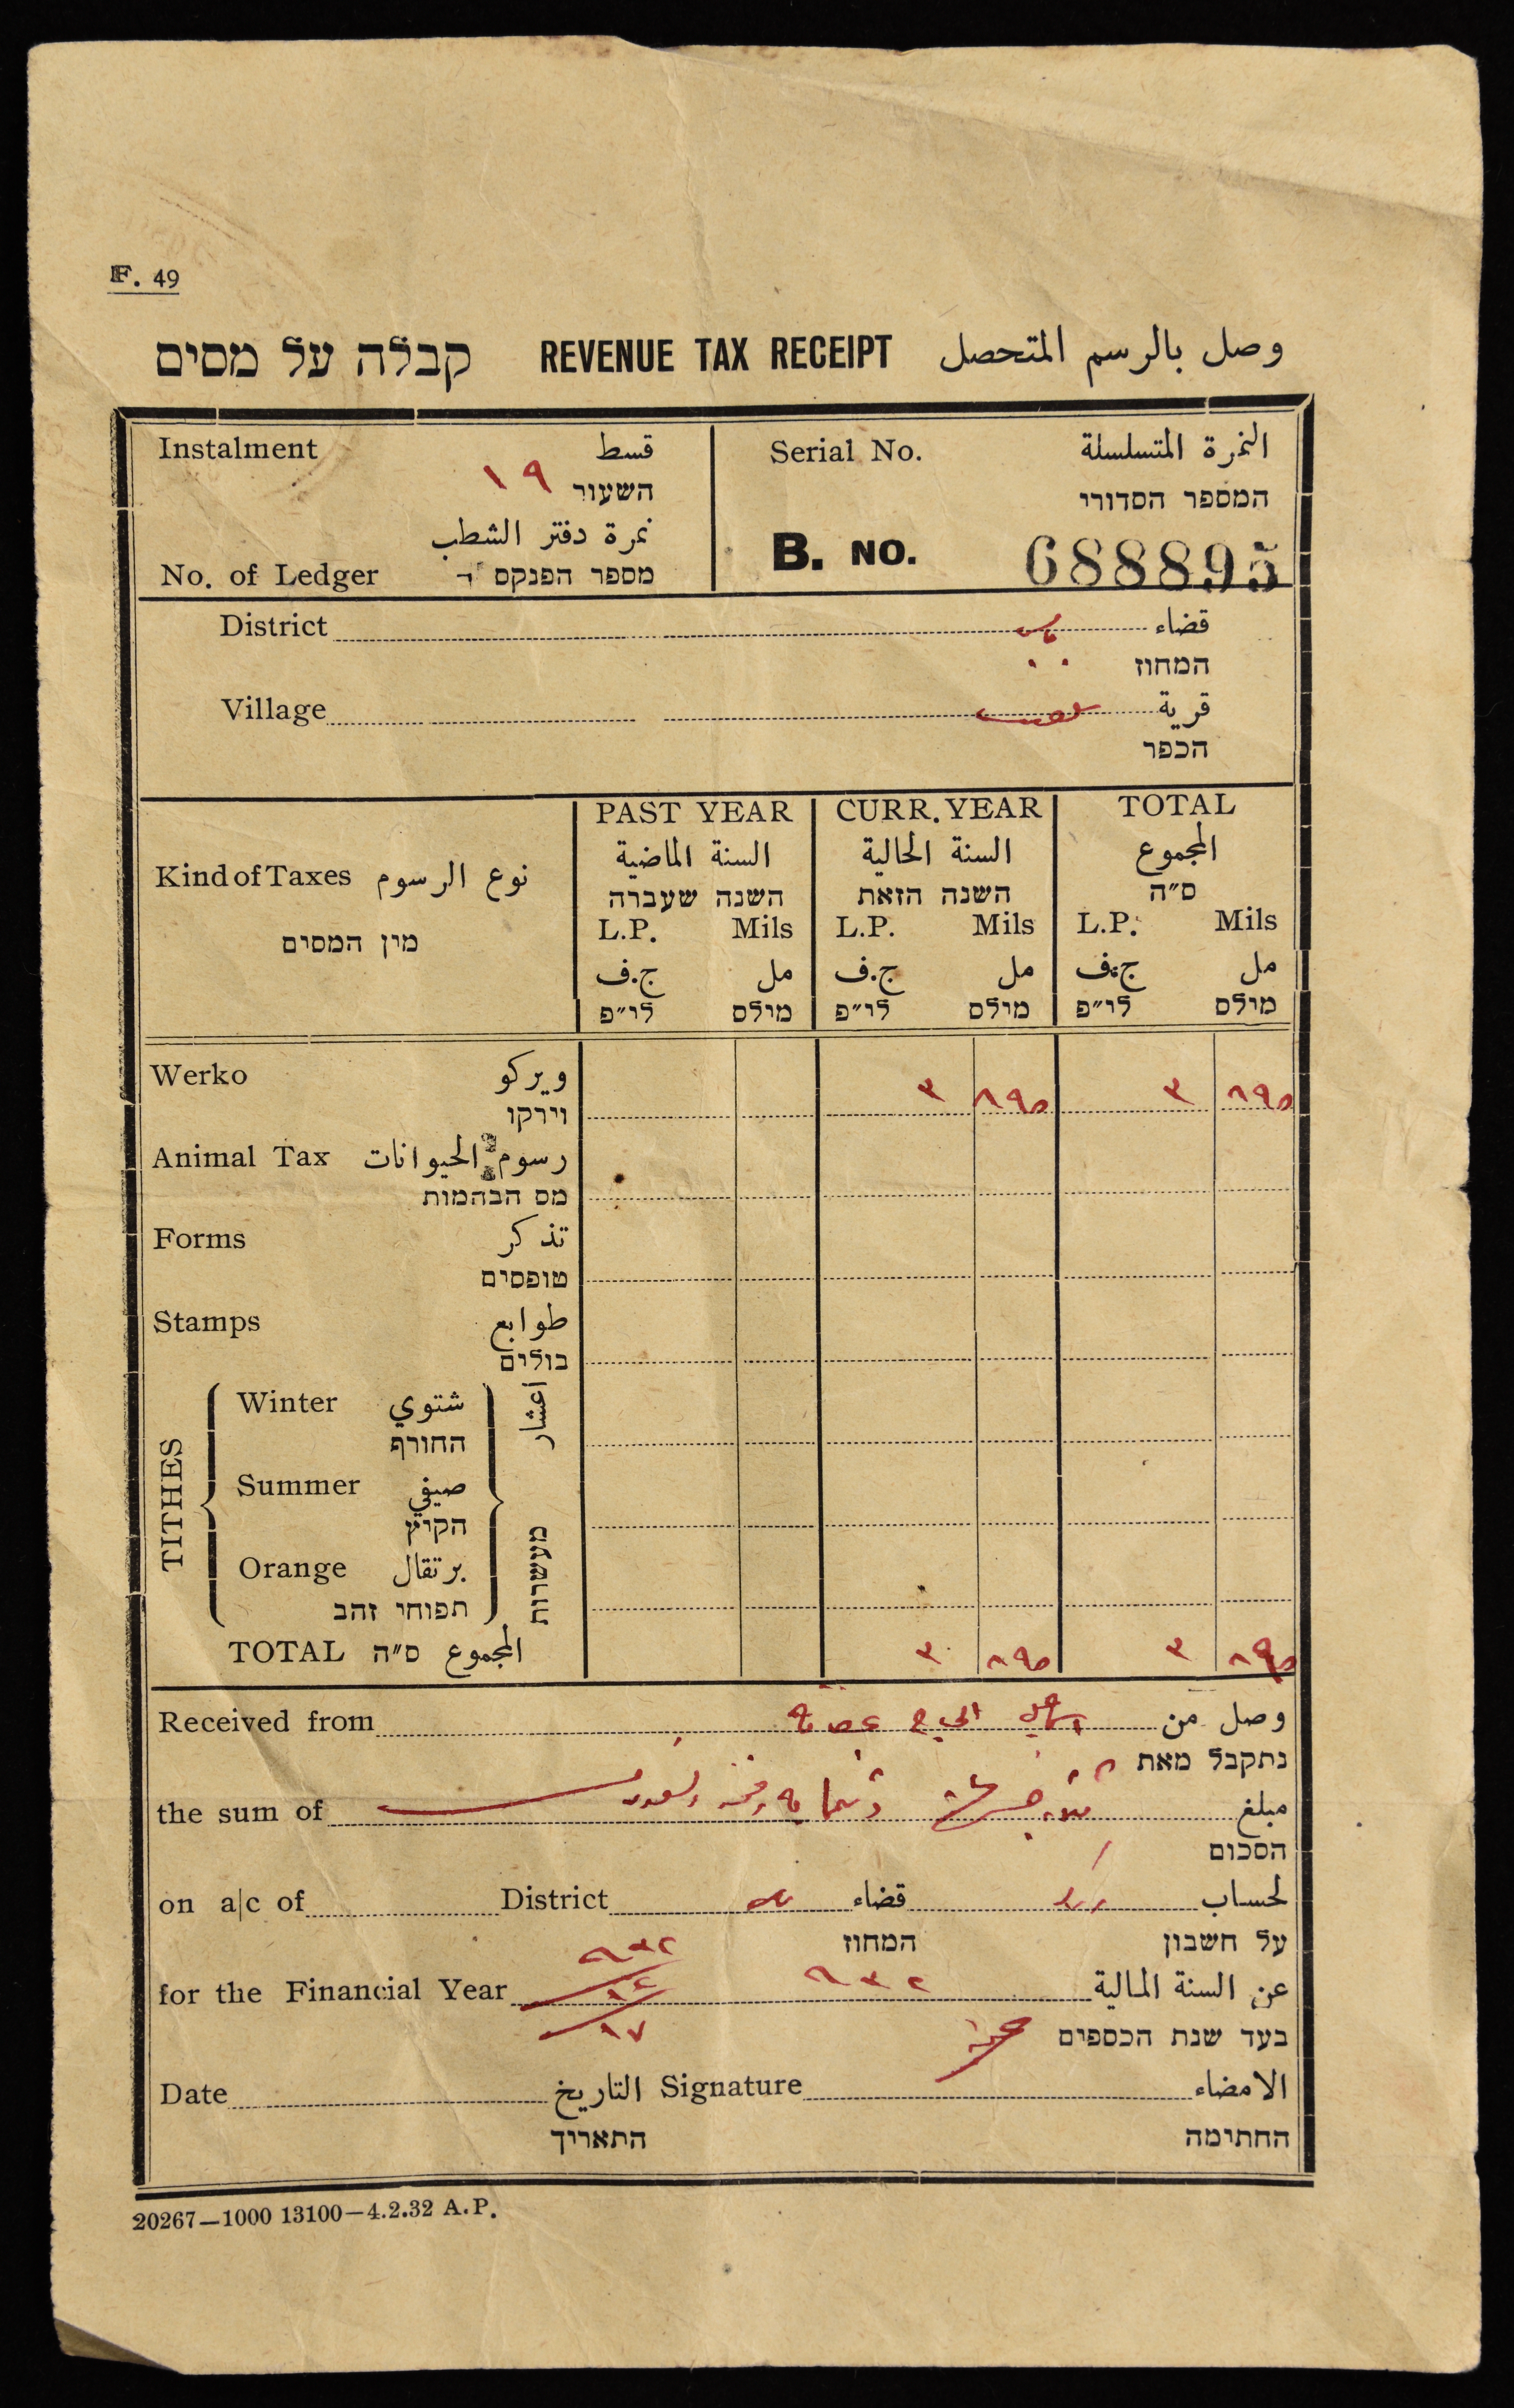 F. 49
קבלה על מסים REVENUE TAX RECEIPT وصل بالرسم المتحصل
Instalment قسط
١٩
השעור
نمرة دفتر الشطب
No. of Ledger מספר הפנקס
Serial No. النمرة المتسلسلة
המספר הסדורי
B. NO. 688895
District قضاء
המחוז
Village قرية
הכפר
Kind of Taxes نوع الرسوم
מין המסים
PAST YEAR CURR. YEAR TOTAL
السنة الماضية السنة الحالية المجموع
השנה שעברה השנה הזאת ס״ה
L.P. Mils L.P. Mils L.P. Mils
ج.ف مل ج.ف مل ج.ف مل
לי״פ מילס לי״פ מילס לי״פ מילס
Werko ويركو ٣ ٨٩٥ ٣ ٨٩٥
וירקו
Animal Tax رسوم الحيوانات
מס הבהמות
Forms تذكر
טופסים
Stamps طوابع
בולים
TITHES اعشار מעשרות
Winter شتوي
החורף
Summer صيفي
הקיץ
Orange برتقال
תפוחי זהב
TOTAL ס״ה المجموع ٣ ٨٩٥ ٣ ٨٩٥
Received from الحاج وصل من
נתקבל מאת
the sum of مبلغ
הסכום
on a/c of District قضاء لحساب
המחוז על חשבון
for the Financial Year ٩٣٢ عن السنة المالية
٩٣٢
١٢
١٧
בעד שנת הכספים
Date التاريخ Signature الامضاء
התאריך החתימה
20267—1000 13100—4.2.32 A.P.